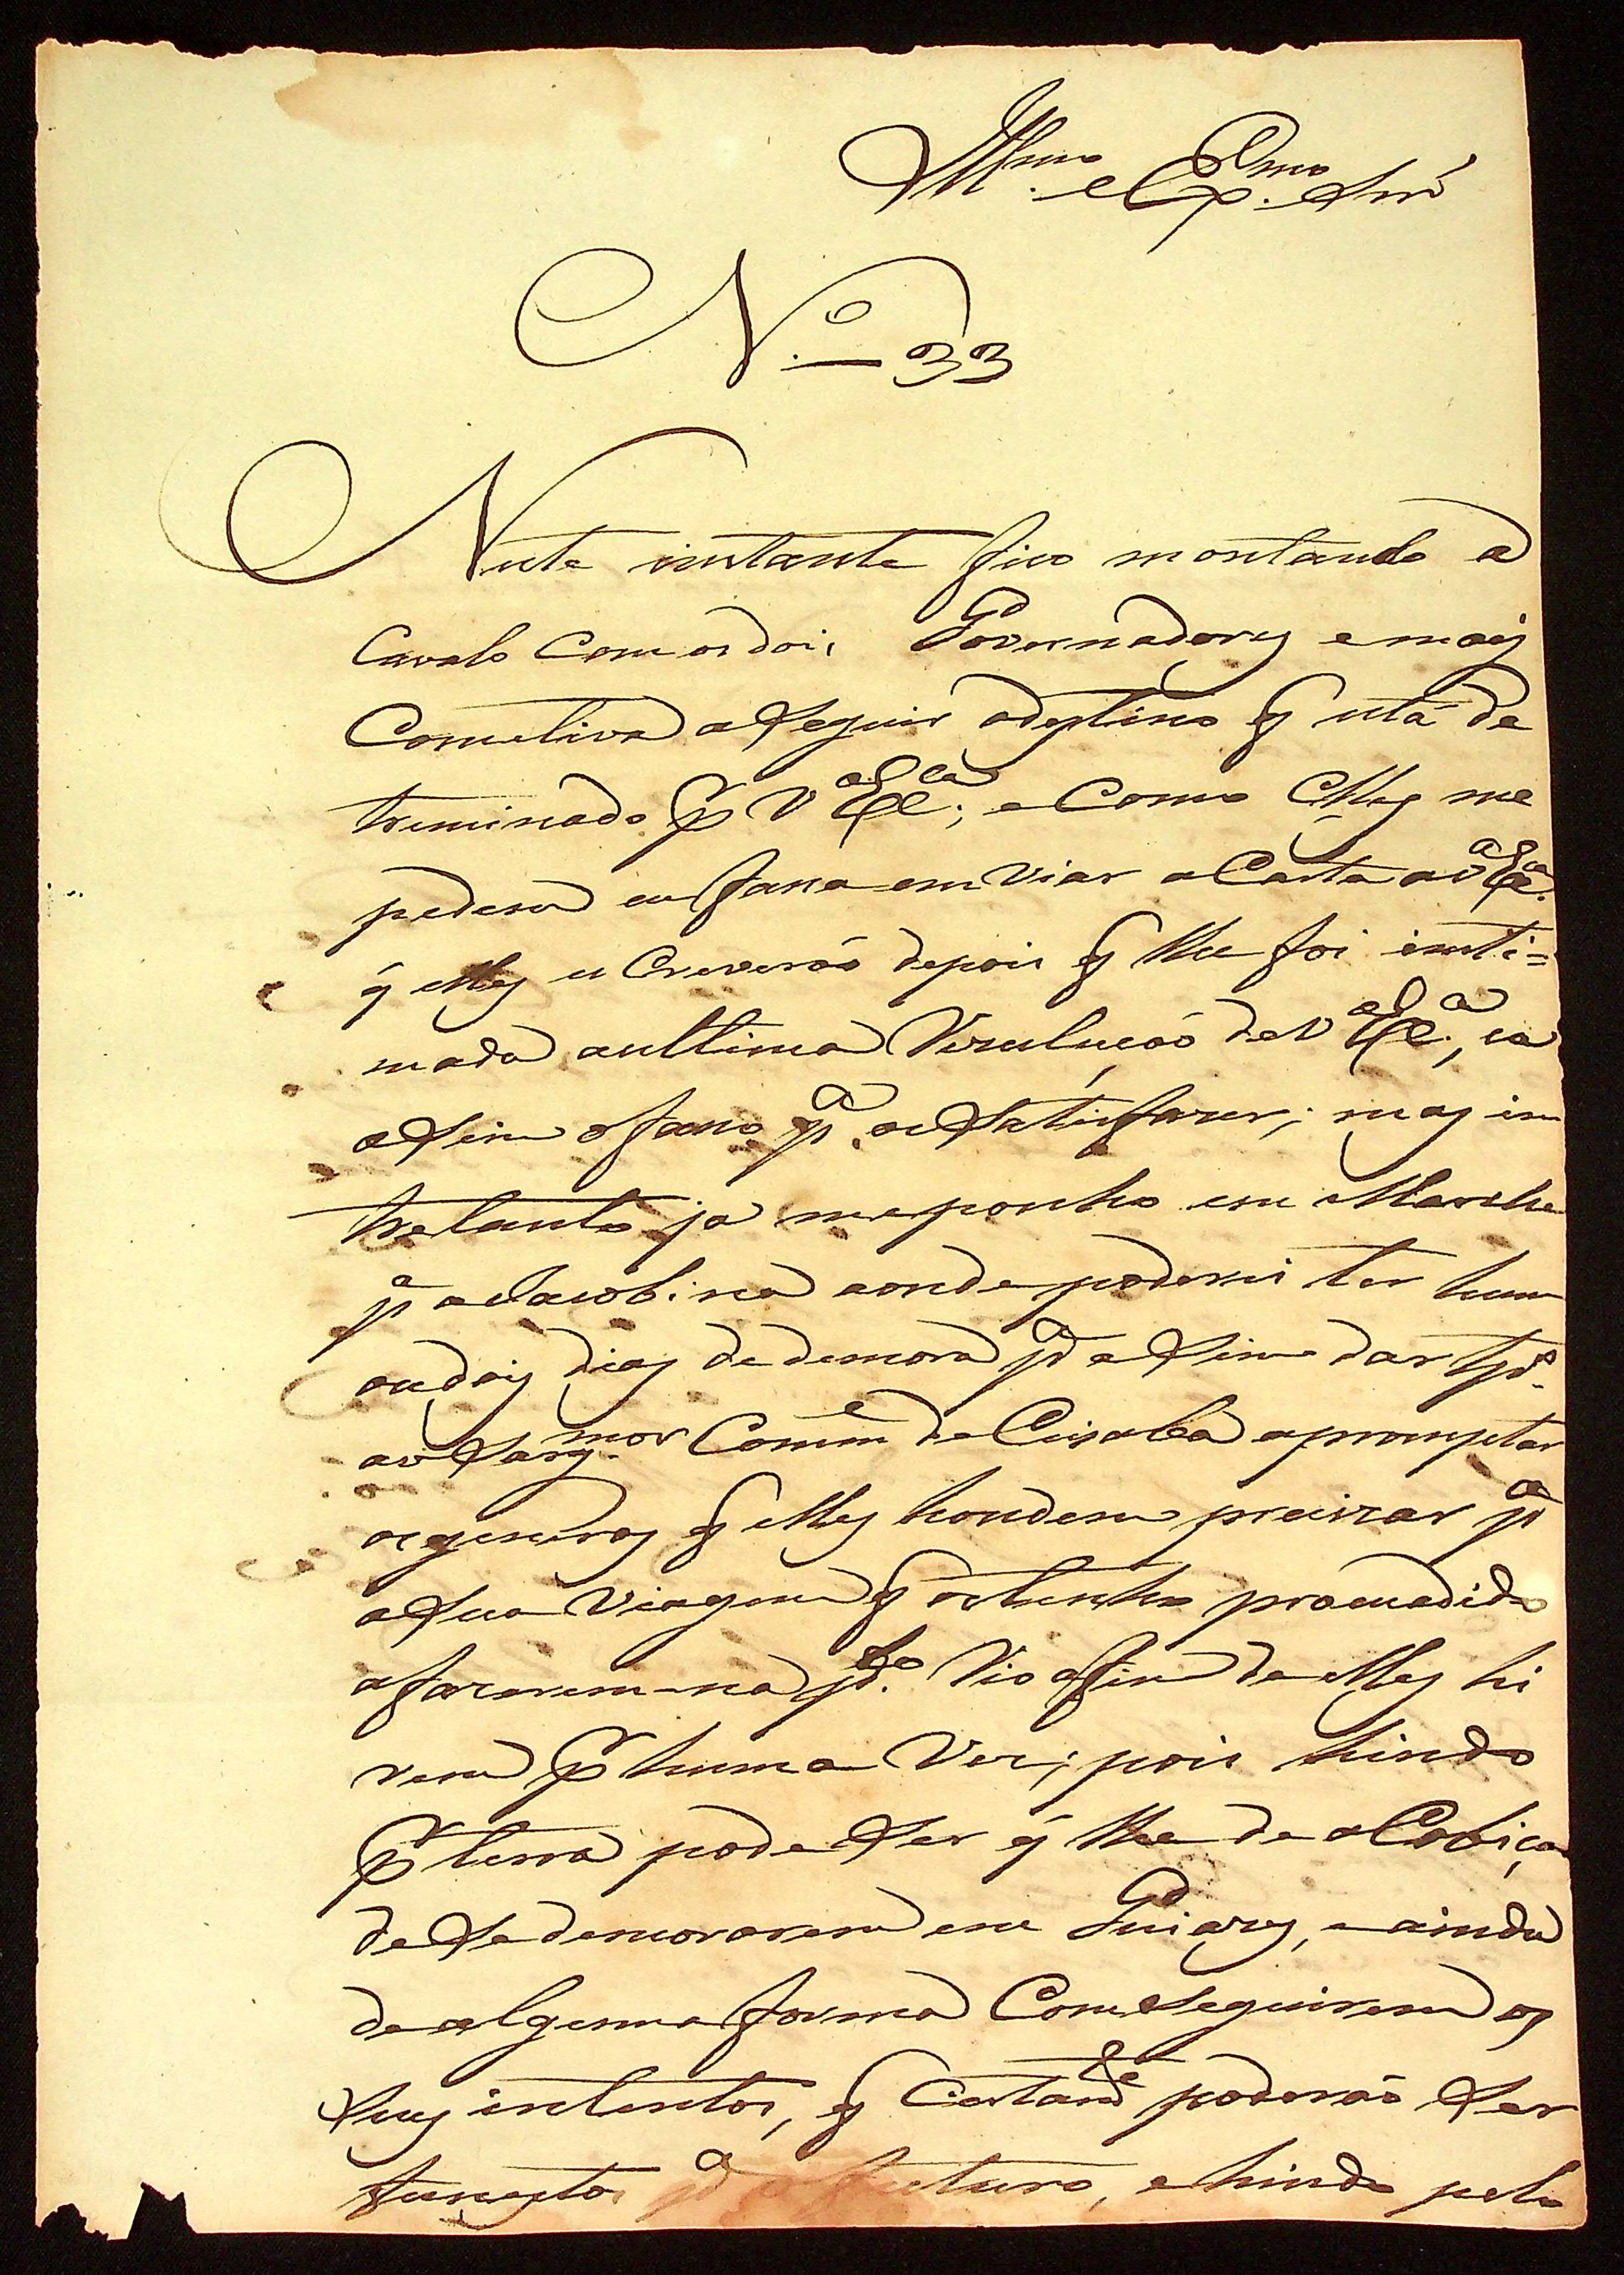 Illmo. e Exmo. Snr
No. 33
Neste instante fico montando a
Cavalo Com os dois Governadores e mais
Cometiva a Seguir odestino q está de
treminado pr V aExca; e Como Elles me
pedem eu fassa emViar a Carta aV aExa.
q elles escreveraõ depois q lhe foi inti=
mada aultima Rezuluçaõ deV aExa, ea
aSim ofasso pa. os Satisfazer; mas in
tretanto ja meponho em Marcha
pa a Jacobina aonde poderei ter hum
oudois dias de demora pa aSim dar tpo.
ao Sargmor Comme de Cuiabá apromptar
os generos q elles houdem precizar pa
aSua Viagem q os tenho procuadido
afazerem-na plo. Rio affim de elles hi
rem pr huma Vez; pois hindo
pr terra pode Ser q lhe de a Cobiça
de Se demorarem em Guiazes, e ainda
de alguma forma ComSeguirem os
Seus intentos, q Certamte poderaõ Ser
funestos pa o futuro, e hindo pelo